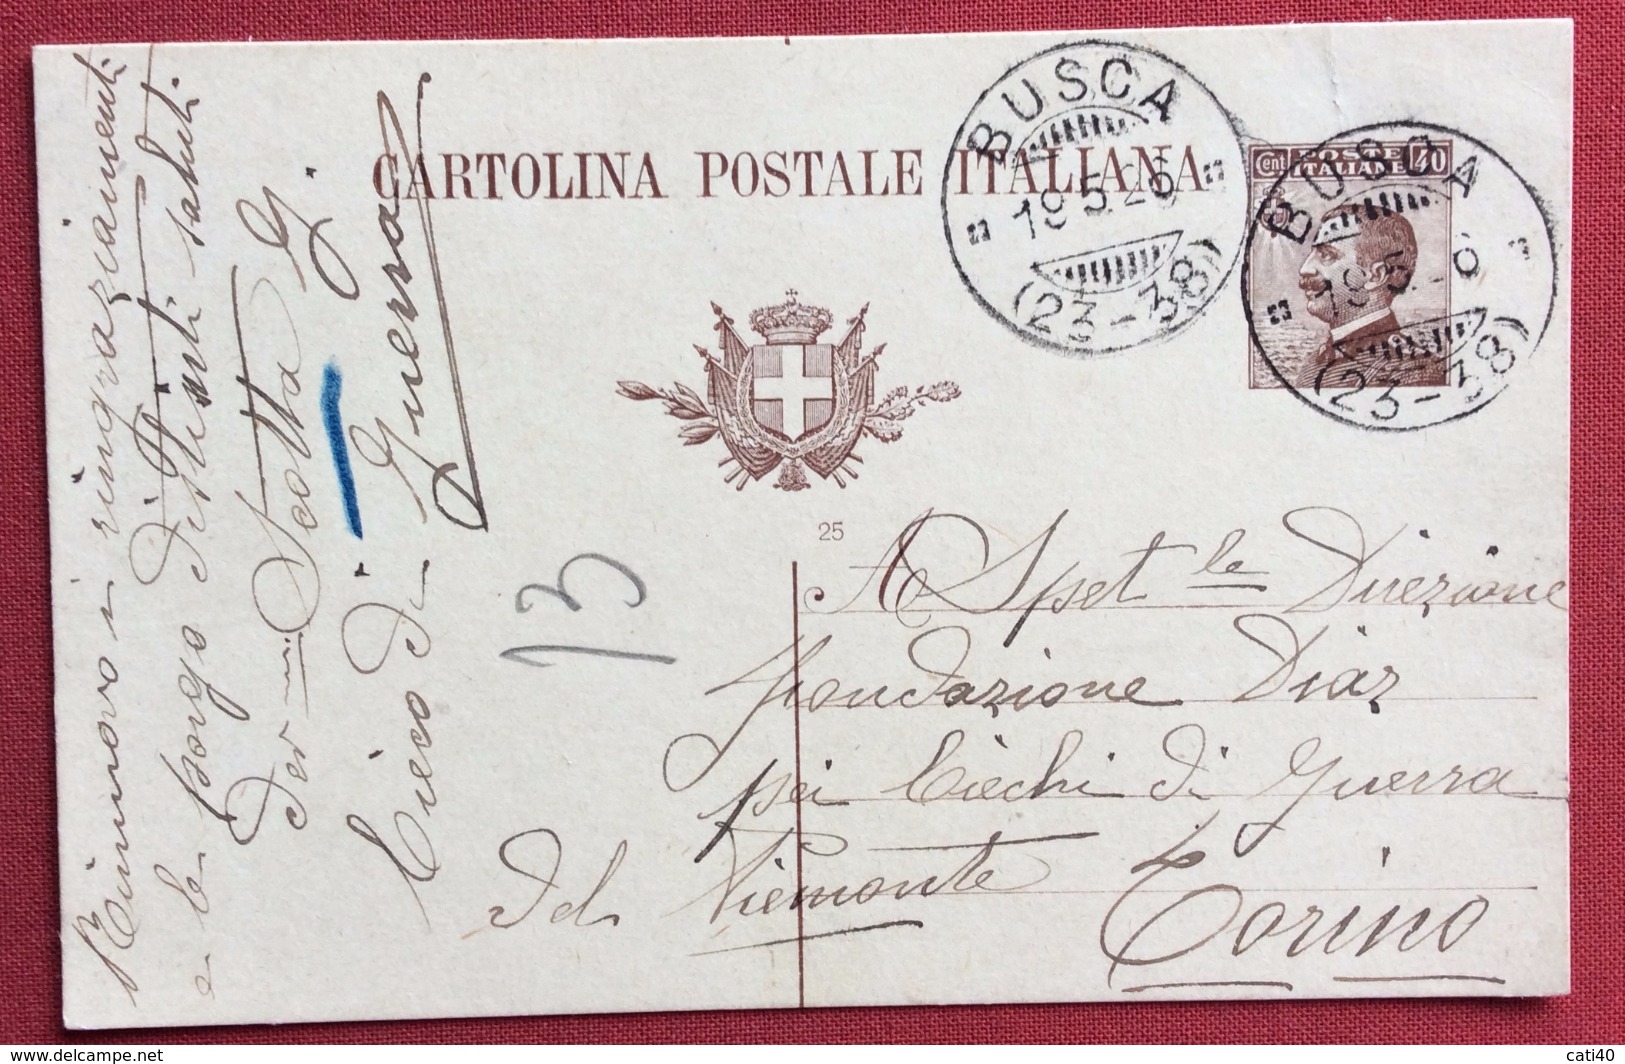 CARTOLINA POSTALE ITALIANA
BUSCA
19.5.26
(23-38)
Cent POSTE ITALIANE 40
BUSCA
19.5.26
(23-38)
25
A Spet le Direzione
Fondazione Diaz
pei Ciechi di Guerra
del Piemonte
Torino
13
Rinnovo i ringraziamenti
e le porgo distinti saluti
Dev mi Sotta G.
Cieco di Guerra
www.delcampe.net
cati40